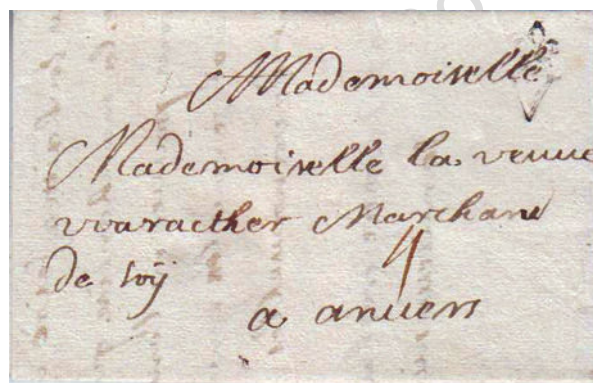 Mademoiselle
Mademoiselle la veuue
waracther Marchand
de soÿ
4
a anuers